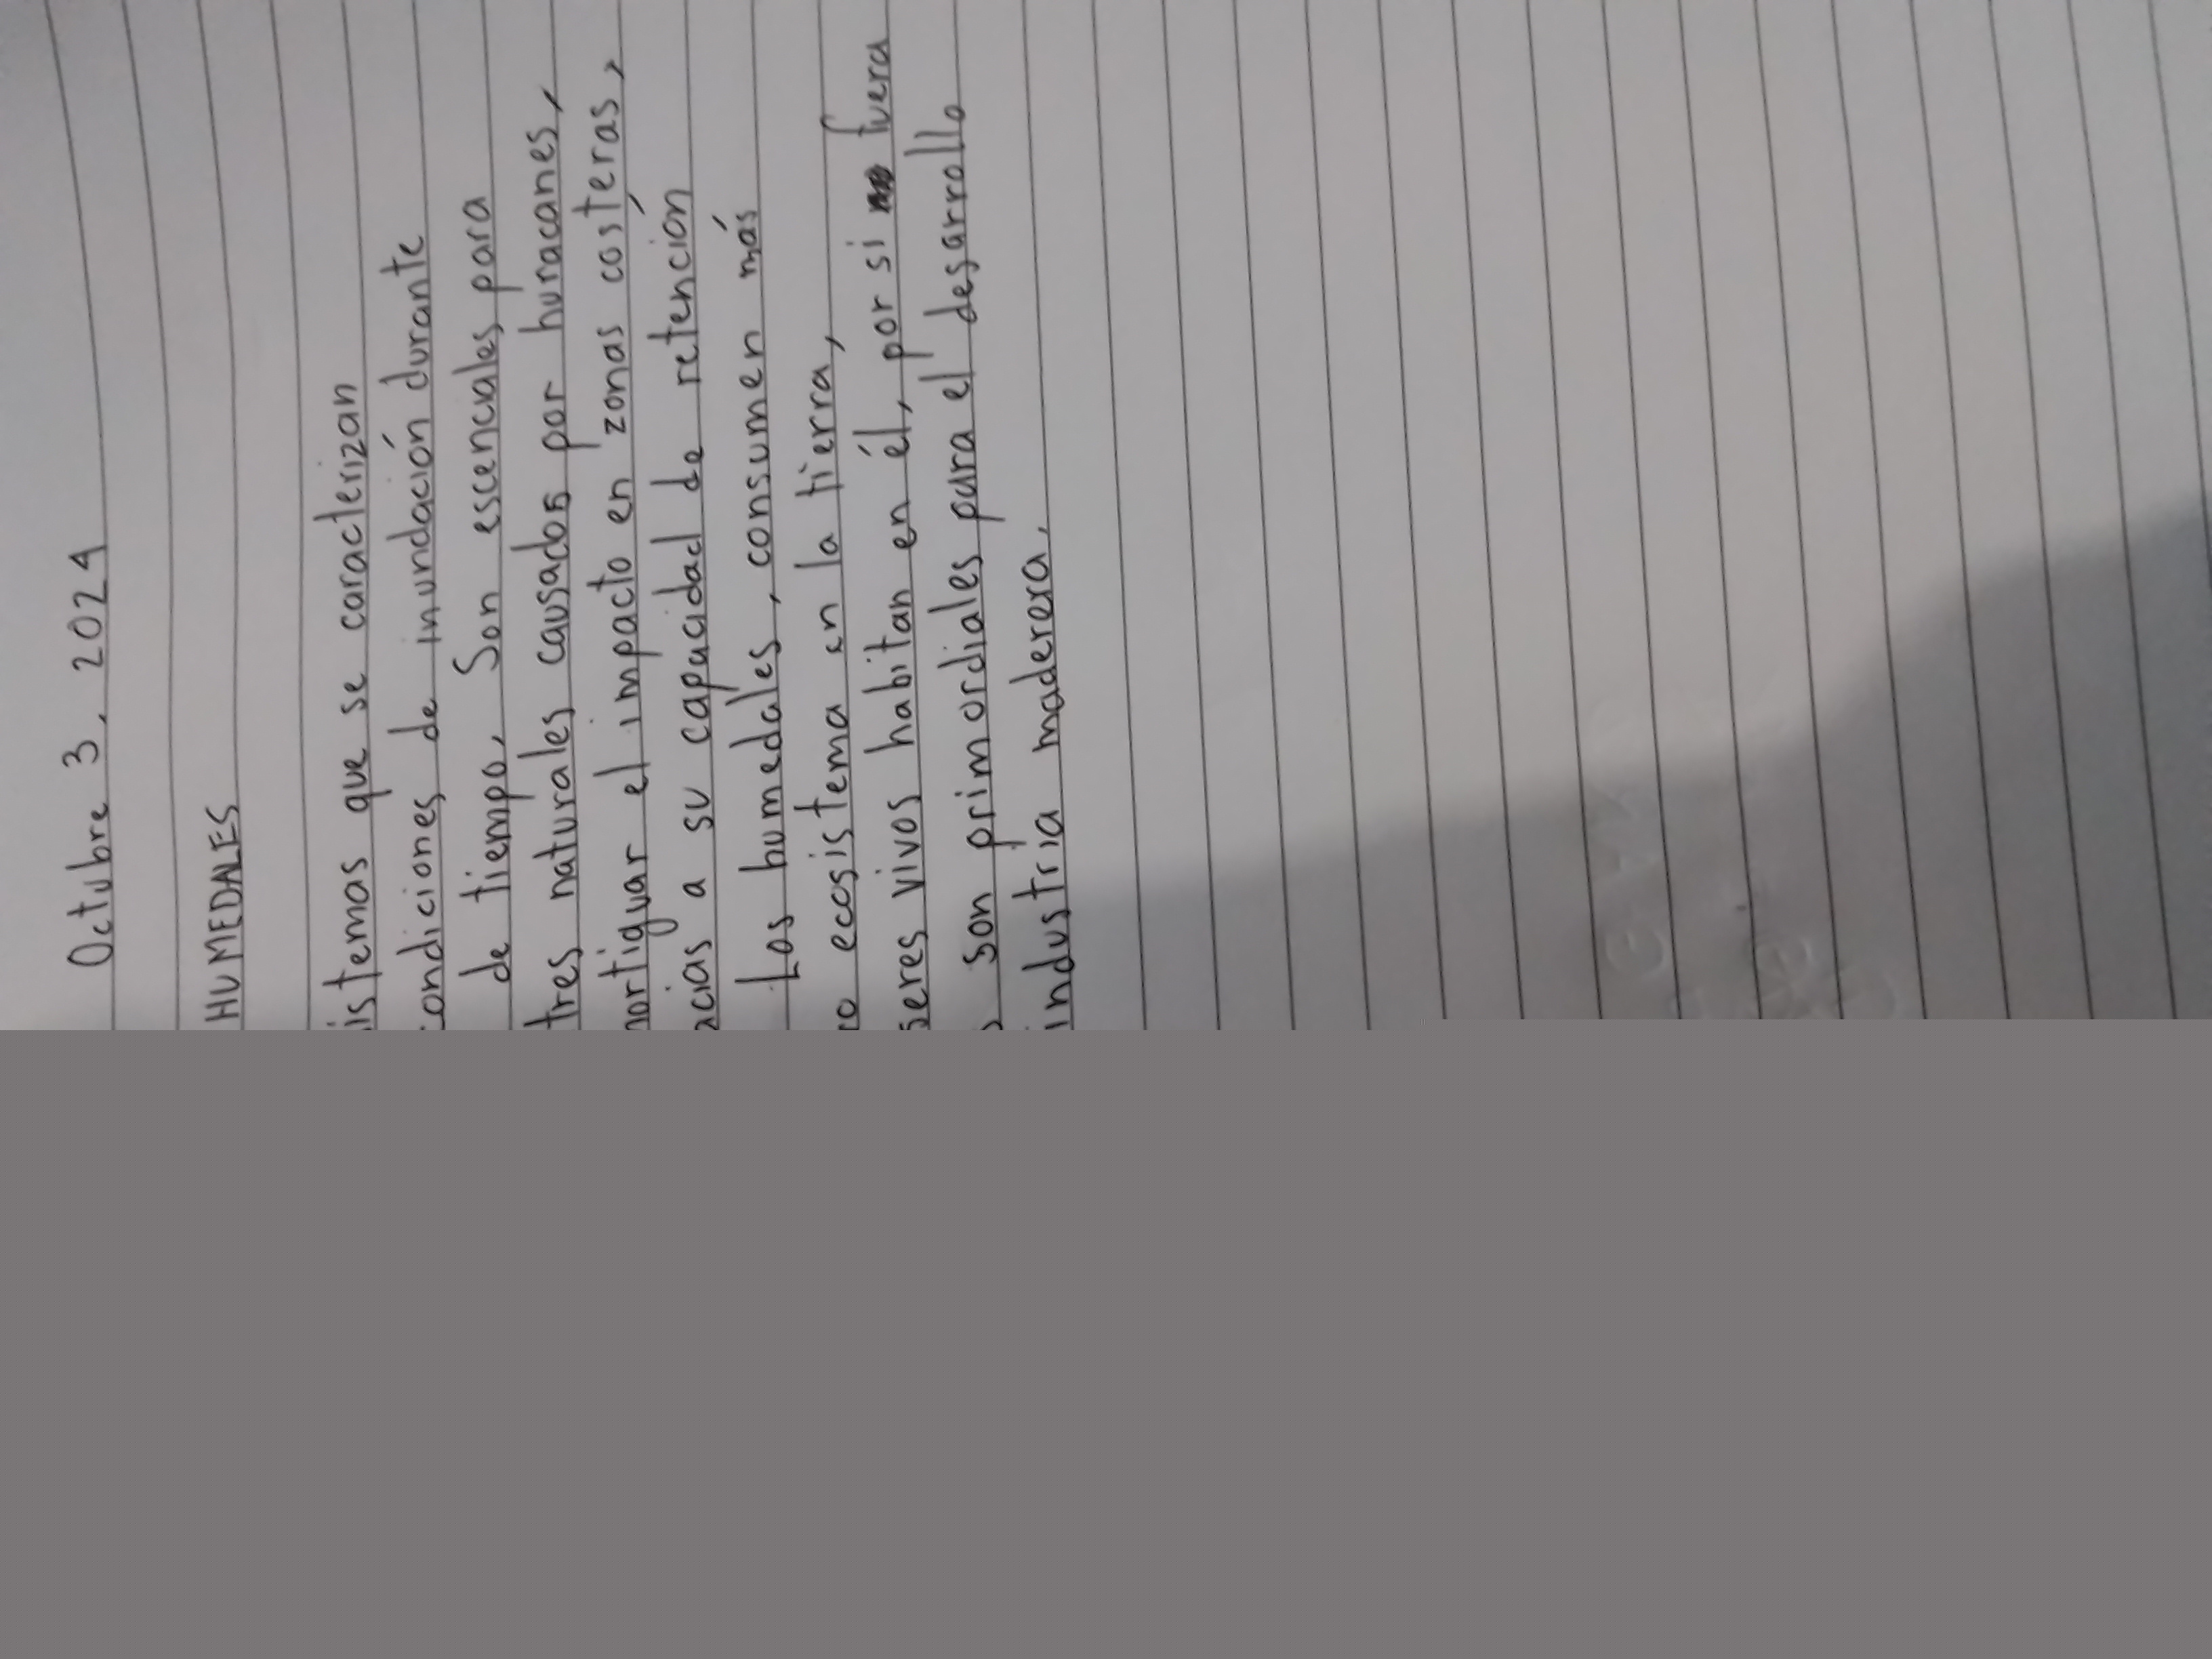 Octubre 3, 2024
HUMEDALES
istemas que se caracterizan
condiciones de inundación durante
de tiempo. Son escenciales para
tres naturales causados por huracanes,
mortiguar el impacto en zonas costeras,
acias a su capacidad de retención
Los humedales, consumen más
co ecosistema en la tierra,
seres vivos habitan en él, por si fuera
son primordiales para el desarrollo
industria maderera.